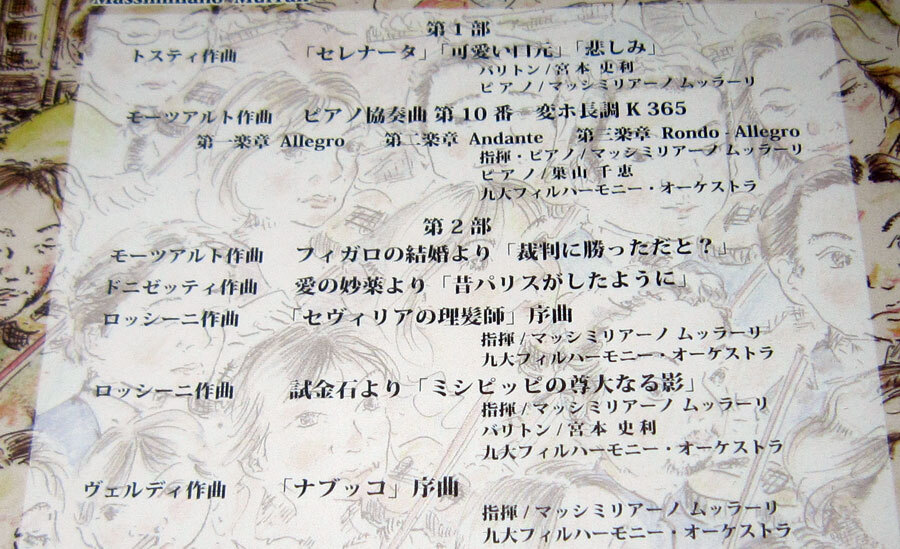 Massimiliano Murrali
第１部
トスティ作曲 「セレナータ」「可愛い口元」「悲しみ」
バリトン/宮本 史利
ピアノ/マッシミリアーノ ムッラーリ
モーツアルト作曲 ピアノ協奏曲 第10番 変ホ長調 K 365
第一楽章 Allegro 第二楽章 Andante 第三楽章 Rondo - Allegro
指揮・ピアノ/マッシミリアーノ ムッラーリ
ピアノ/巣山 千恵
九大フィルハーモニー・オーケストラ
第２部
モーツアルト作曲 フィガロの結婚より「裁判に勝っただと？」
ドニゼッティ作曲 愛の妙薬より「昔パリスがしたように」
ロッシーニ作曲 「セヴィリアの理髪師」序曲
指揮/マッシミリアーノ ムッラーリ
九大フィルハーモニー・オーケストラ
ロッシーニ作曲 試金石より「ミシピッピの尊大なる影」
指揮/マッシミリアーノ ムッラーリ
バリトン/宮本 史利
九大フィルハーモニー・オーケストラ
ヴェルディ作曲 「ナブッコ」序曲
指揮/マッシミリアーノ ムッラーリ
九大フィルハーモニー・オーケストラ